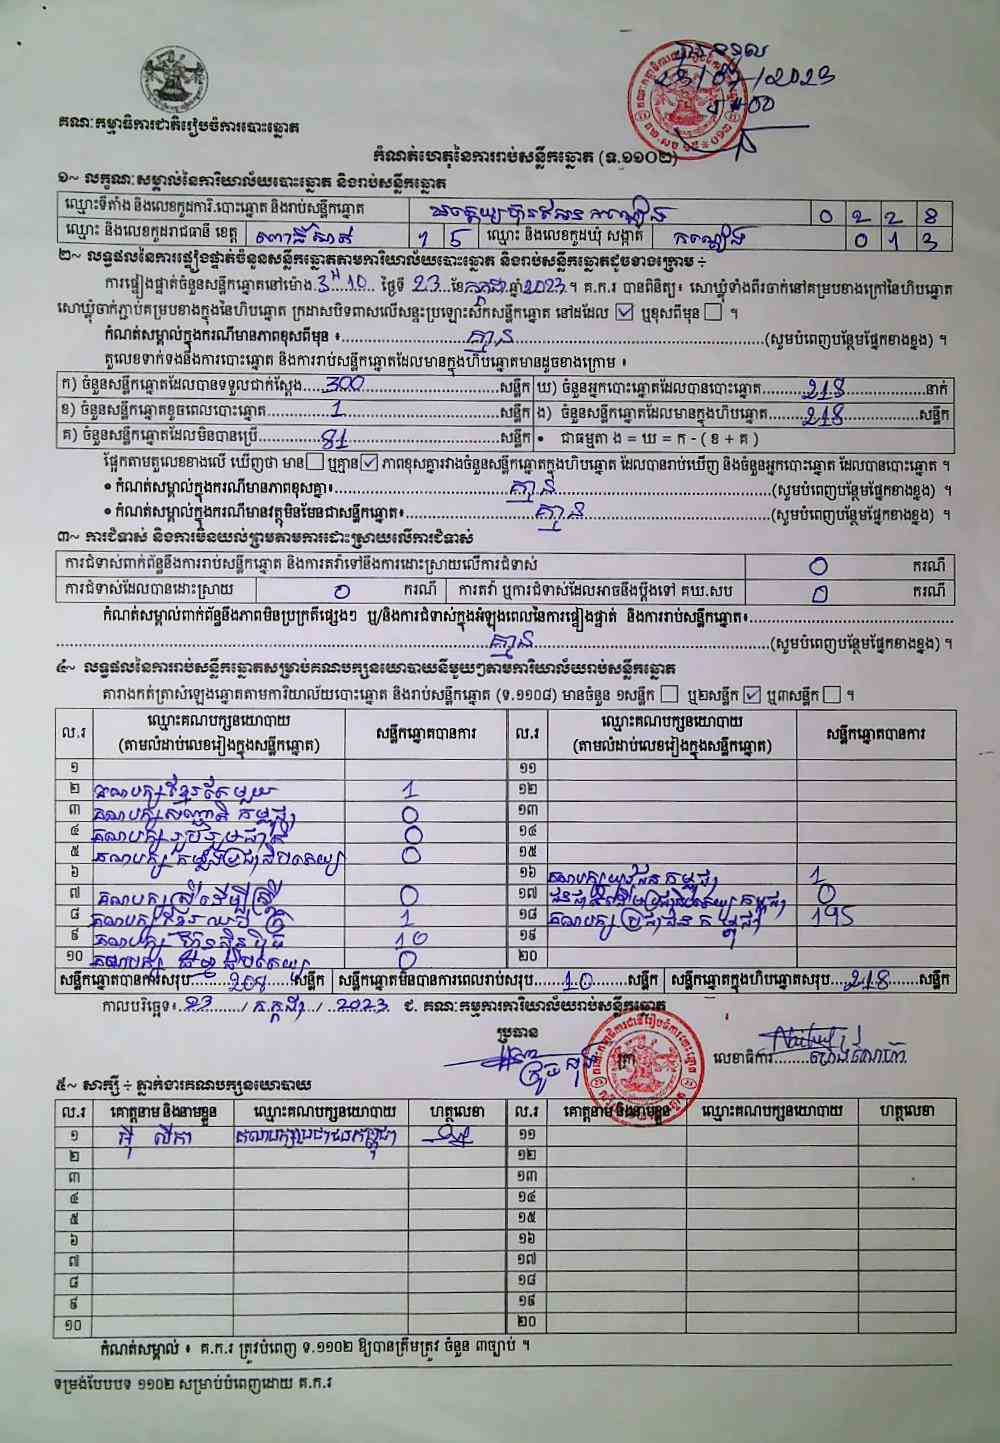 បានទទួល
23/07/2023
គណៈកម្មាធិការជាតិរៀបចំការបោះឆ្នោត
កំណត់ហេតុនៃការរាប់សន្លឹកឆ្នោត (ទ.១១០២)
១~ លក្ខណៈសម្គាល់នៃការិយាល័យបោះឆ្នោត និងរាប់សន្លឹកឆ្នោត
ឈ្មោះទីតាំង និងលេខកូដការិ.បោះឆ្នោត និងរាប់សន្លឹកឆ្នោត 0 2 2 8
ឈ្មោះ និងលេខកូដរាជធានី ខេត្ត ពោធិ៍សាត់ 1 5 ឈ្មោះ និងលេខកូដឃុំ សង្កាត់ 0 1 3
២~ លទ្ធផលនៃការផ្ទៀងផ្ទាត់ចំនួនសន្លឹកឆ្នោតតាមការិយាល័យបោះឆ្នោត និងរាប់សន្លឹកឆ្នោតដូចខាងក្រោម ÷
ការផ្ទៀងផ្ទាត់ចំនួនសន្លឹកឆ្នោតនៅម៉ោង 3H10 ថ្ងៃទី 23 ខែ កក្កដា ឆ្នាំ 2023 ។ គ.ក.រ បានពិនិត្យ៖ សោឃ្លុំទាំងពីរចាក់នៅគម្របខាងក្រៅនៃហិបឆ្នោត
សោឃ្លុំចាក់ភ្ជាប់គម្របខាងក្នុងនៃហិបឆ្នោត ក្រដាសបិទពាសលើសន្ទះប្រឡោះស៊កសន្លឹកឆ្នោត នៅដដែល ☑ ឬខុសពីមុន ☐ ។
កំណត់សម្គាល់ក្នុងករណីមានភាពខុសពីមុន ៖ គ្មាន (សូមបំពេញបន្ថែមផ្នែកខាងខ្នង) ។
តួលេខទាក់ទងនឹងការបោះឆ្នោត និងការរាប់សន្លឹកឆ្នោតដែលមានក្នុងហិបឆ្នោតមានដូចខាងក្រោម ៖
ក) ចំនួនសន្លឹកឆ្នោតដែលបានទទួលជាក់ស្តែង 300 សន្លឹក ឃ) ចំនួនអ្នកបោះឆ្នោតដែលបានបោះឆ្នោត 218 នាក់
ខ) ចំនួនសន្លឹកឆ្នោតខូចពេលបោះឆ្នោត 1 សន្លឹក ង) ចំនួនសន្លឹកឆ្នោតដែលមានក្នុងហិបឆ្នោត 218 សន្លឹក
គ) ចំនួនសន្លឹកឆ្នោតដែលមិនបានប្រើ 81 សន្លឹក • ជាធម្មតា ង = ឃ = ក - ( ខ + គ )
ផ្អែកតាមតួលេខខាងលើ ឃើញថា មាន ☐ ឬគ្មាន ☑ ភាពខុសគ្នារវាងចំនួនសន្លឹកឆ្នោតក្នុងហិបឆ្នោត ដែលបានរាប់ឃើញ និងចំនួនអ្នកបោះឆ្នោត ដែលបានបោះឆ្នោត ។
• កំណត់សម្គាល់ក្នុងករណីមានភាពខុសគ្នា៖ គ្មាន (សូមបំពេញបន្ថែមផ្នែកខាងខ្នង) ។
• កំណត់សម្គាល់ក្នុងករណីមានវត្ថុមិនមែនជាសន្លឹកឆ្នោត៖ គ្មាន (សូមបំពេញបន្ថែមផ្នែកខាងខ្នង) ។
៣~ ការជំទាស់ និងការមិនយល់ព្រមតាមការដោះស្រាយលើការជំទាស់
ការជំទាស់ពាក់ព័ន្ធនឹងការរាប់សន្លឹកឆ្នោត និងការតវ៉ាទៅនឹងការដោះស្រាយលើការជំទាស់ 0 ករណី
ការជំទាស់ដែលបានដោះស្រាយ 0 ករណី ការតវ៉ា ឬការជំទាស់ដែលអាចនឹងប្តឹងទៅ គឃ.សប 0 ករណី
កំណត់សម្គាល់ពាក់ព័ន្ធនឹងភាពមិនប្រក្រតីផ្សេងៗ ឬ/និងការជំទាស់ក្នុងអំឡុងពេលនៃការផ្ទៀងផ្ទាត់ និងការរាប់សន្លឹកឆ្នោត៖
គ្មាន (សូមបំពេញបន្ថែមផ្នែកខាងខ្នង) ។
៤~ លទ្ធផលនៃការរាប់សន្លឹកឆ្នោតសម្រាប់គណបក្សនយោបាយនីមួយៗតាមការិយាល័យរាប់សន្លឹកឆ្នោត
តារាងកត់ត្រាសំឡេងឆ្នោតតាមការិយាល័យបោះឆ្នោត និងរាប់សន្លឹកឆ្នោត (ទ.១១០៨) មានចំនួន ១សន្លឹក ☐ ឬ២សន្លឹក ☑ ឬ៣សន្លឹក ☐ ។
ល.រ ឈ្មោះគណបក្សនយោបាយ (តាមលំដាប់លេខរៀងក្នុងសន្លឹកឆ្នោត) សន្លឹកឆ្នោតបានការ ល.រ ឈ្មោះគណបក្សនយោបាយ (តាមលំដាប់លេខរៀងក្នុងសន្លឹកឆ្នោត) សន្លឹកឆ្នោតបានការ
១ ១១
២ គណបក្សខ្មែរតែមួយ 1 ១២
៣ គណបក្សសញ្ជាតិកម្ពុជា 0 ១៣
៤ គណបក្សរួបរួមជាតិ 0 ១៤
៥ គណបក្សកម្លាំងប្រជាធិបតេយ្យ 0 ១៥
៦ ១៦ គណបក្សយុវជនកម្ពុជា 1
៧ គណបក្សស្ត្រីដើម្បីស្ត្រី 0 ១៧ 0
៨ 1 ១៨ គណបក្សប្រជាជនកម្ពុជា 195
៩ គណបក្សហ៊្វុនស៊ិនប៉ិច 10 ១៩
១០ គណបក្សធម្មាធិបតេយ្យ 0 ២០
សន្លឹកឆ្នោតបានការសរុប 208 សន្លឹក សន្លឹកឆ្នោតមិនបានការពេលរាប់សរុប 10 សន្លឹក សន្លឹកឆ្នោតក្នុងហិបឆ្នោតសរុប 218 សន្លឹក
កាលបរិច្ឆេទ៖ 23 / កក្កដា / 2023 ជ. គណៈកម្មការការិយាល័យរាប់សន្លឹកឆ្នោត
ប្រធាន
ត្រា លេខាធិការ
៥~ សាក្សី ÷ ភ្នាក់ងារគណបក្សនយោបាយ
ល.រ គោត្តនាម និងនាមខ្លួន ឈ្មោះគណបក្សនយោបាយ ហត្ថលេខា ល.រ គោត្តនាម និងនាមខ្លួន ឈ្មោះគណបក្សនយោបាយ ហត្ថលេខា
១ គណបក្សប្រជាជនកម្ពុជា ១១
២ ១២
៣ ១៣
៤ ១៤
៥ ១៥
៦ ១៦
៧ ១៧
៨ ១៨
៩ ១៩
១០ ២០
កំណត់សម្គាល់ ៖ គ.ក.រ ត្រូវបំពេញ ទ.១១០២ ឱ្យបានត្រឹមត្រូវ ចំនួន ៣ច្បាប់ ។
ទម្រង់បែបបទ ១១០២ សម្រាប់បំពេញដោយ គ.ក.រ